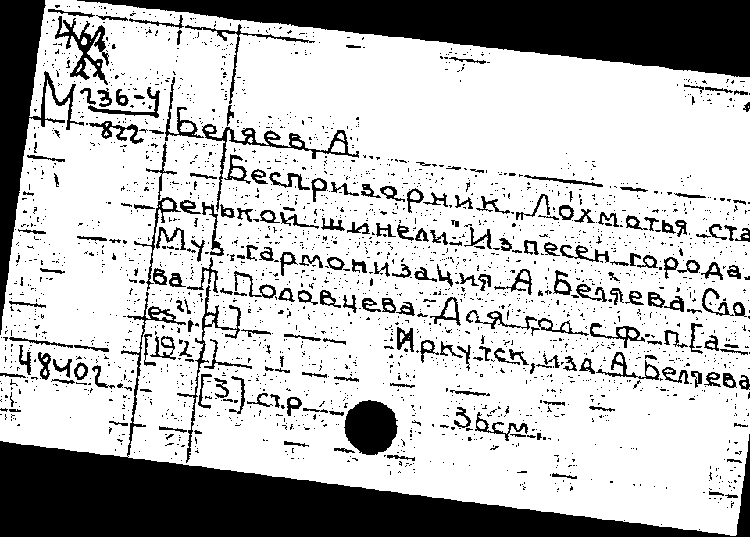 М 236-4
822
Беляев, А.
Беспризорник. „Лохмотья ста
ренькой шинели" Из песен города.
Муз. гармонизация А. Беляева. Сло
ва П. Половцева. Для гол. с ф-п. [a-
es², d]
Иркутск, изд. А. Беляева
[1927]
[3] стр.
36см.
48402